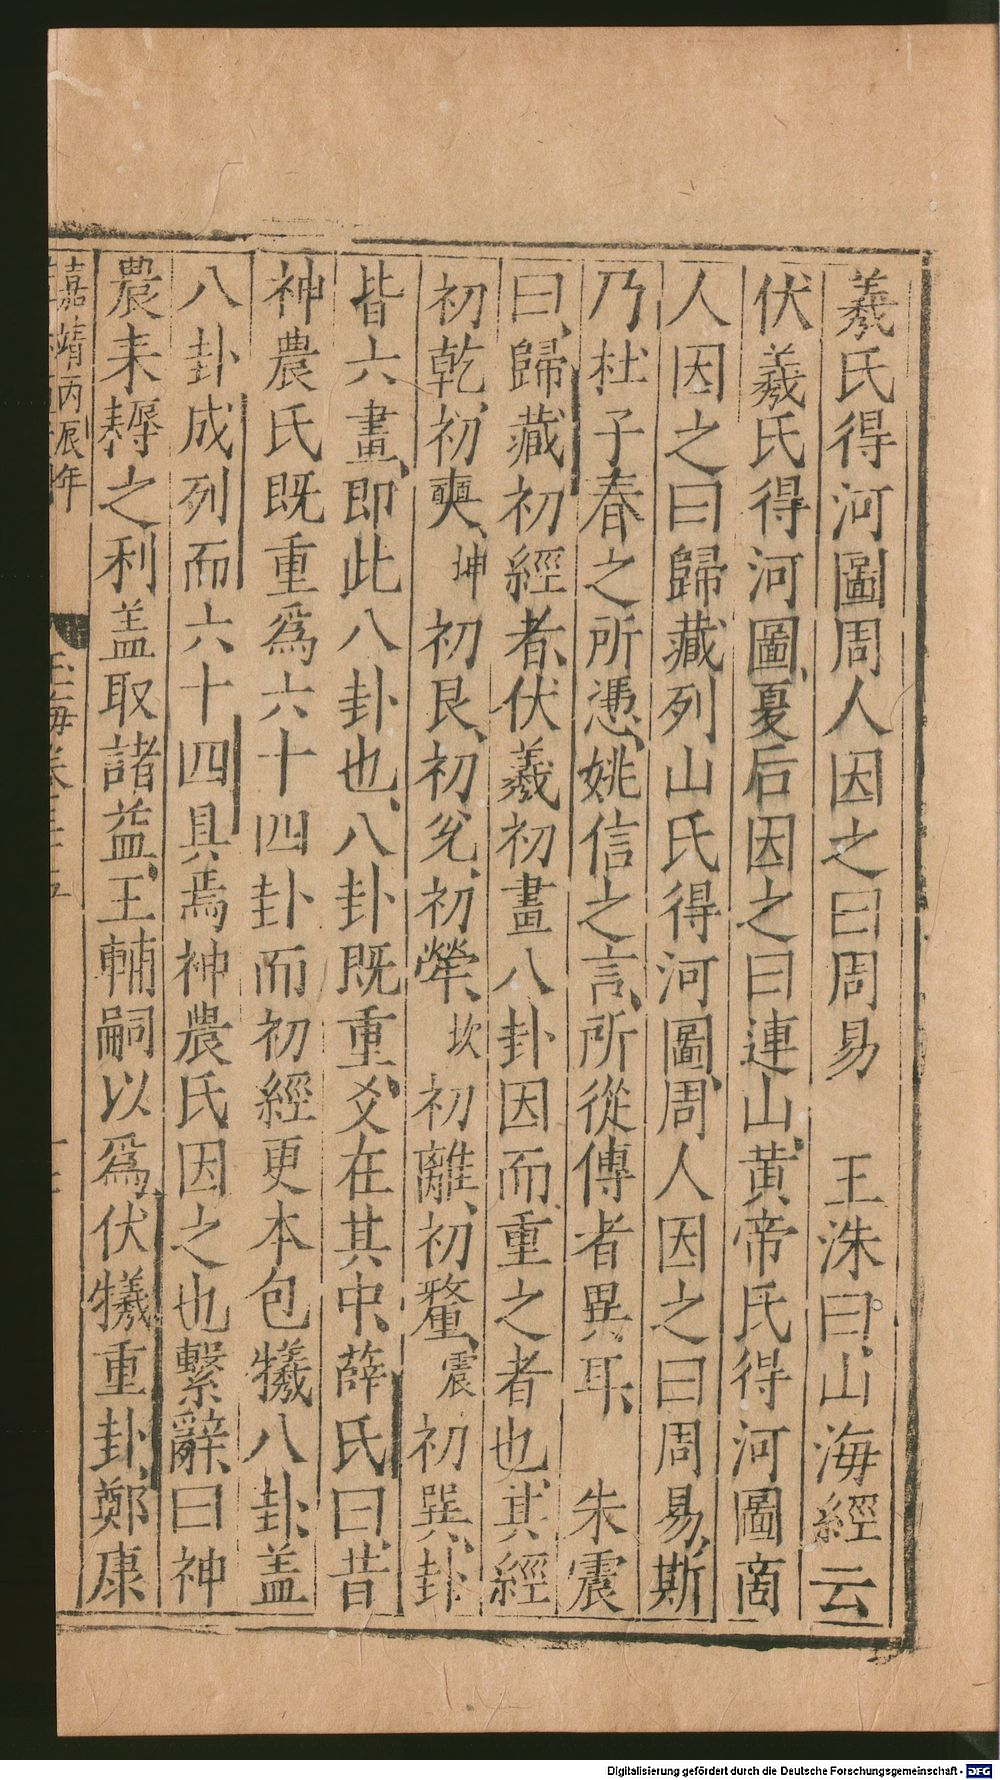 羲氏得河圖周人因之曰周易　王洙曰山海經云
伏羲氏得河圖夏后因之曰連山黄帝氏得河圖商
人因之曰歸藏列山氏得河圖周人因之曰周易斯
乃杜子春之所憑姚信之言所從傳者異耳　朱震
曰歸藏初經者伏羲初畫八卦因而重之者也其經
初乾初奭坤初艮初兊初犖坎初離初釐震初巽卦
皆六畫即此八卦也八卦既重爻在其中薛氏曰昔
神農氏既重爲六十四卦而初經更本包犧八卦盖
八卦成列而六十四具焉神農氏因之也繫辭曰神
農耒耨之利盖取諸益王輔嗣以爲伏犧重卦鄭康
嘉靖丙辰年
玉海卷三十五
Digitalisierung gefördert durch die Deutsche Forschungsgemeinschaft - DFG